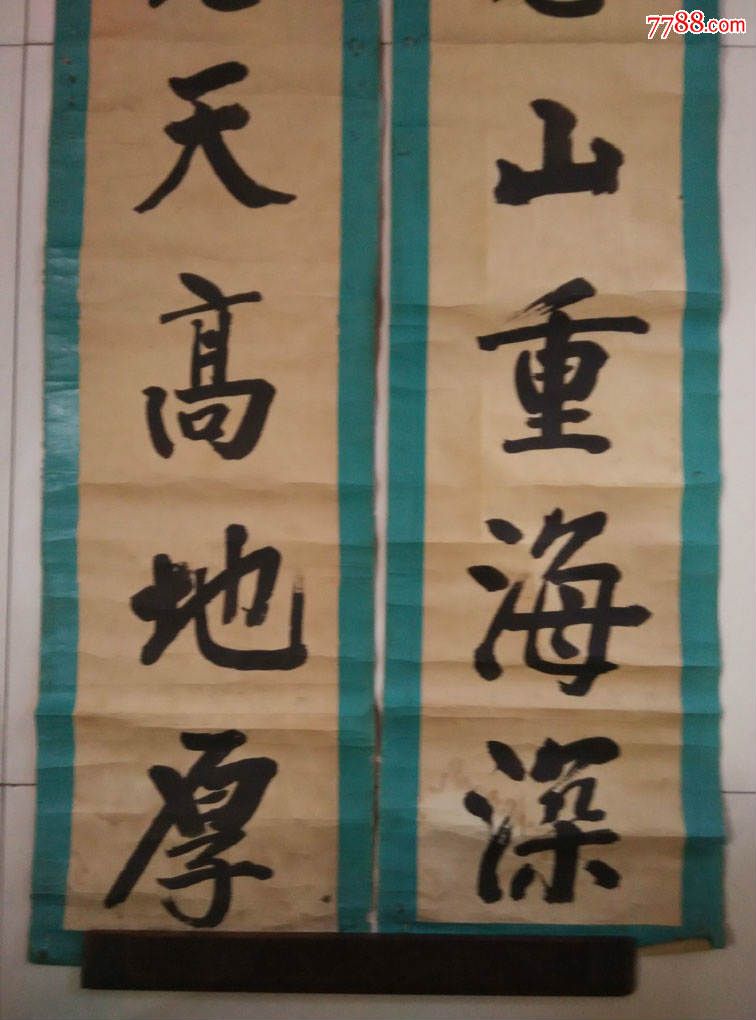 7788.com
山重海深
天高地厚